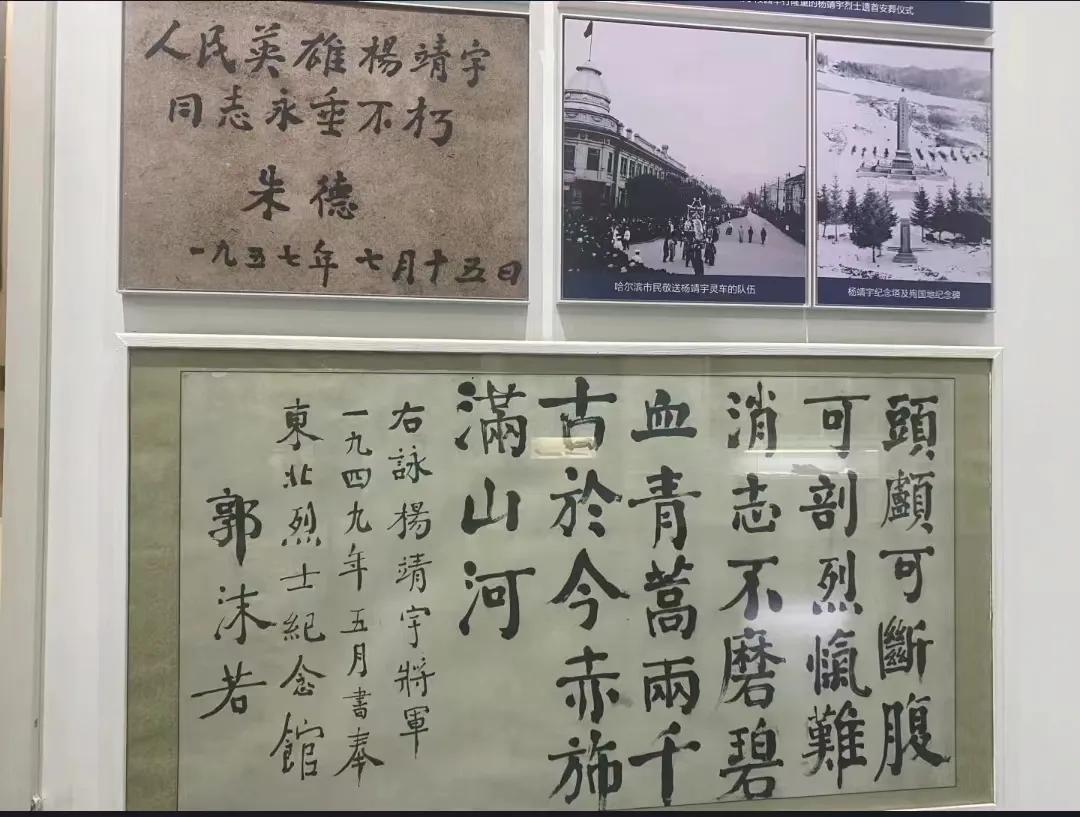 行隆重的杨靖宇烈士遗首安葬仪式
人民英雄楊靖宇
同志永垂不朽
朱德
一九五七年七月十五日
哈尔滨市民敬送杨靖宇灵车的队伍
杨靖宇纪念塔及殉国地纪念碑
頭顱可斷腹
可剖烈愾難
消志不磨碧
血青蒿兩千
古於今赤旆
滿山河
右詠楊靖宇將軍
一九四九年五月書奉
東北烈士紀念館
郭沫若